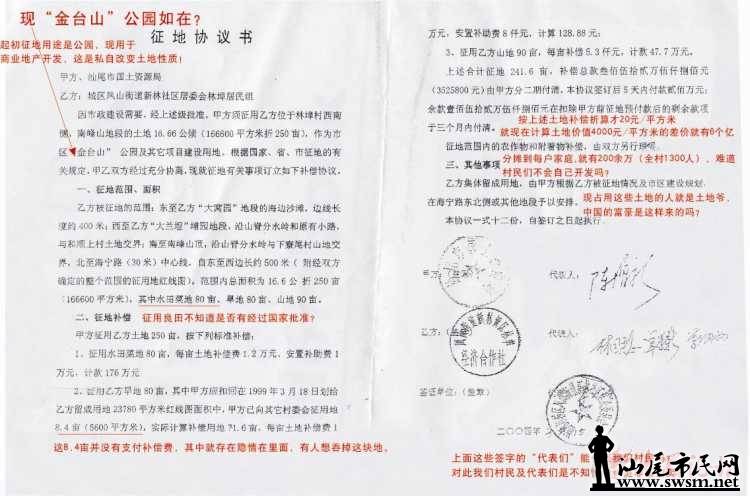 现“金台山”公园如在？
征地协议书
起初征地用途是公园，现用于
商业地产开发，这是私自改变土地性质！
甲方、汕尾市国土资源局
乙方：城区凤山街道新林社区居委会林埠居民组
因市政建设需要，经上述级批准，甲方须征用乙方位于林埠村西南
侧，南峰山地段的土地16.66公顷（166600平方米折250亩），作为市
区“金台山”公园及其它项目建设用地。根据国家、省、市征地的有
关规定，甲乙双方经过充分协商，现就征地有关事项订立如下补偿协议。
一、征地范围、面积
乙方被征地的范围：东至乙方“大湾园”地段的海边沙滩，边线长
度约400米；西至乙方“大兰堀”埔园地段，沿山脊分水岭和原有小路，
与和顺上村土地交界；南至南峰山顶，沿山脊分水岭与下寮尾村山地交
界，北至海宁路（30米）中心线，自东至西边长约500米（附经双方
确定的整个范围的征用地红线图）。范围内总面积为16.6公 折250亩
（166600平方米），其中水田菜地80亩、旱地80亩、山地90亩。
二、征地补偿 征用良田不知道是否有经过国家批准？
甲方征用乙方土地250亩，按下列标准补偿：
1、征用水田菜地80亩，每亩土地补偿费1.2万元，安置补助费1
万元，计款176万元
2、征用乙方旱地80亩，其中甲方应扣回在1999年3月18日划给
乙方留成用地23780平方米红线图面积中，甲方已向其它村委会征用地
8.4亩（5600平方米），实际计算补偿用地71.6亩，每亩土地补偿费1
这8.4亩并没有支付补偿费，其中就存在隐情在里面，有人想吞掉这块地。
万元，安置补助费8仟元，计算128.88元；
3、征用乙方山地90亩，每亩补偿5.3仟元，计款47.7万元，
上述合计征地241.6亩，补偿总款叁佰伍拾贰万伍仟捌佰元
（3525800元）由甲方分二期付清。本协议签订后5天内付款贰佰万元；
余款壹佰伍拾贰万伍仟捌佰元在扣除甲方前征地预付款后的剩余款项
于三个月内付清。
按上述土地补偿折算才20元/平方米
就现在计算土地价值4000元/平方米的差价就有6个亿
征地范围内的农作物和附着物补偿，由双方另行
三、其他事项
分摊到每户家庭，就有200余万（全村1300人），难道
村民们不会自己开发吗？
乙方集体留成用地，由甲方根据乙方被征地情况及市区建设规划，
在海宁路东北侧或其他地段予以安排。
现占用这些土地的人就是土地爷，
中国的富豪是这样来的吗？
本协议一式十二份，自签订之日起执行。
甲方：
代表人：
乙方：
代表人：
经济合作社
签证单位：（盖章）
二〇〇四年
上面这些签字的“代表们”能
对此我们村民及代表们是不知
汕尾市民网
www.swsm.net